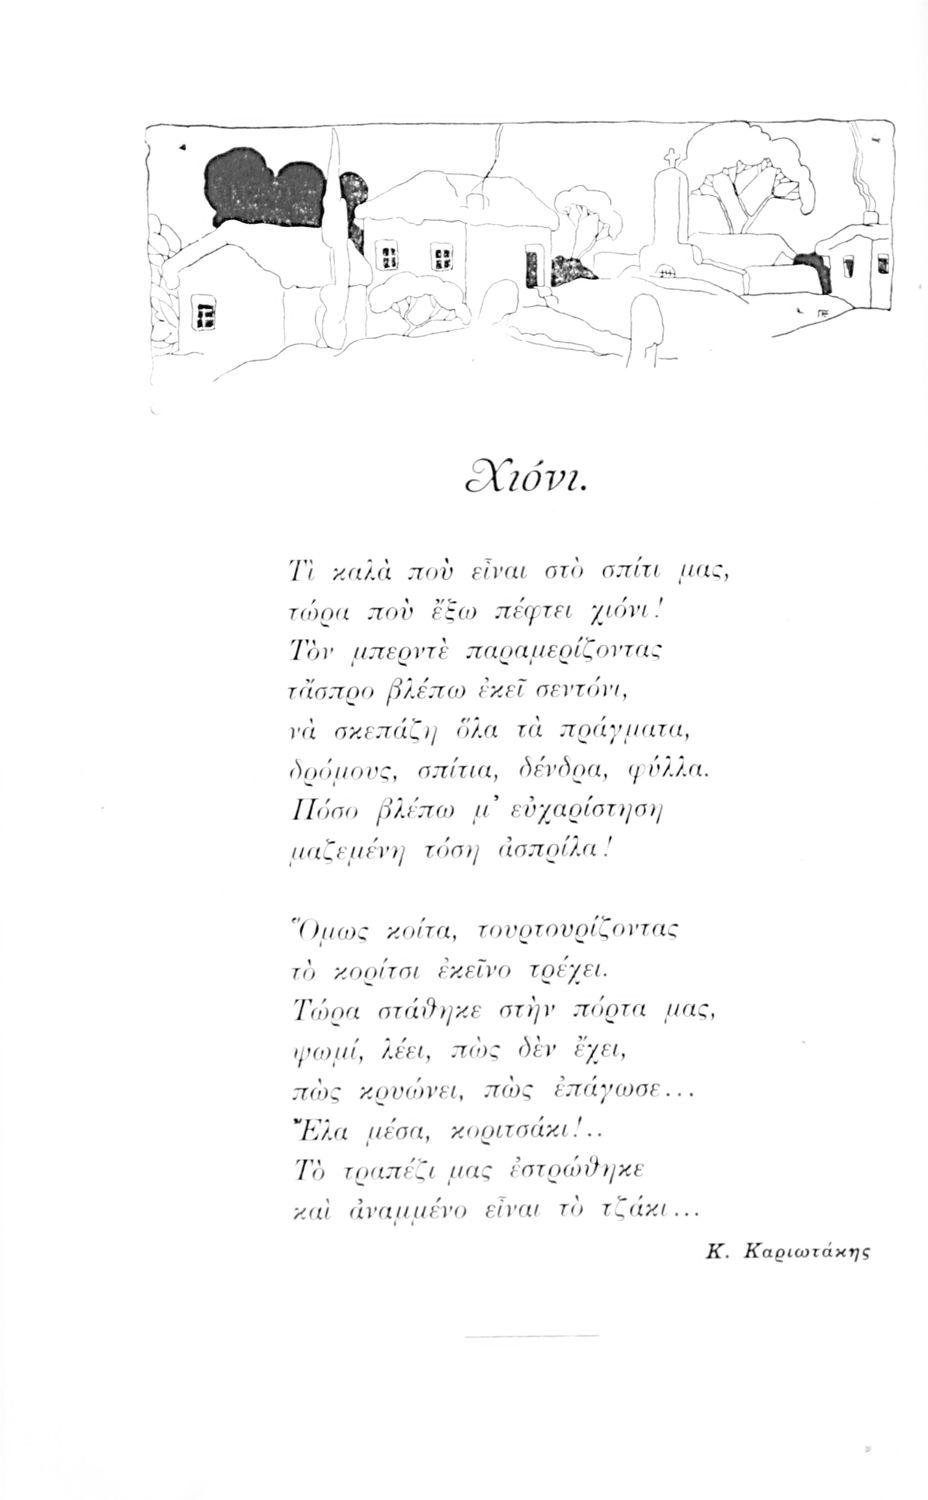 Χιόνι.
Τί καλὰ ποὺ εἶναι στὸ σπίτι μας,
τώρα ποὺ ἔξω πέφτει χιόνι!
Τὸν μπερντὲ παραμερίζοντας
τἄσπρο βλέπω ἐκεῖ σεντόνι,
νὰ σκεπάζῃ ὅλα τὰ πράγματα,
δρόμους, σπίτια, δένδρα, φύλλα.
Πόσο βλέπω μ' εὐχαρίστηση
μαζεμένη τόση ἀσπρίλα!
Ὅμως κοίτα, τουρτουρίζοντας
τὸ κορίτσι ἐκεῖνο τρέχει.
Τώρα στάθηκε στὴν πόρτα μας,
ψωμί, λέει, πὼς δὲν ἔχει,
πὼς κρυώνει, πὼς ἐπάγωσε...
Ἔλα μέσα, κοριτσάκι!..
Τὸ τραπέζι μας ἐστρώθηκε
καὶ ἀναμμένο εἶναι τὸ τζάκι...
Κ. Καριωτάκης